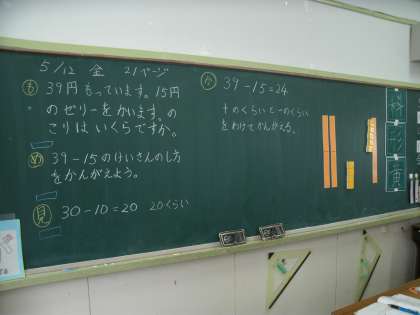 5/12 金 21ページ
も 39円もっています。15円
のゼリーをかいます。の
こりはいくらですか。
め 39-15のけいさんのし方
をかんがえよう。
見 30-10=20 20くらい
か 39-15=24
十のくらいと一のくらい
をわけてかんがえる。